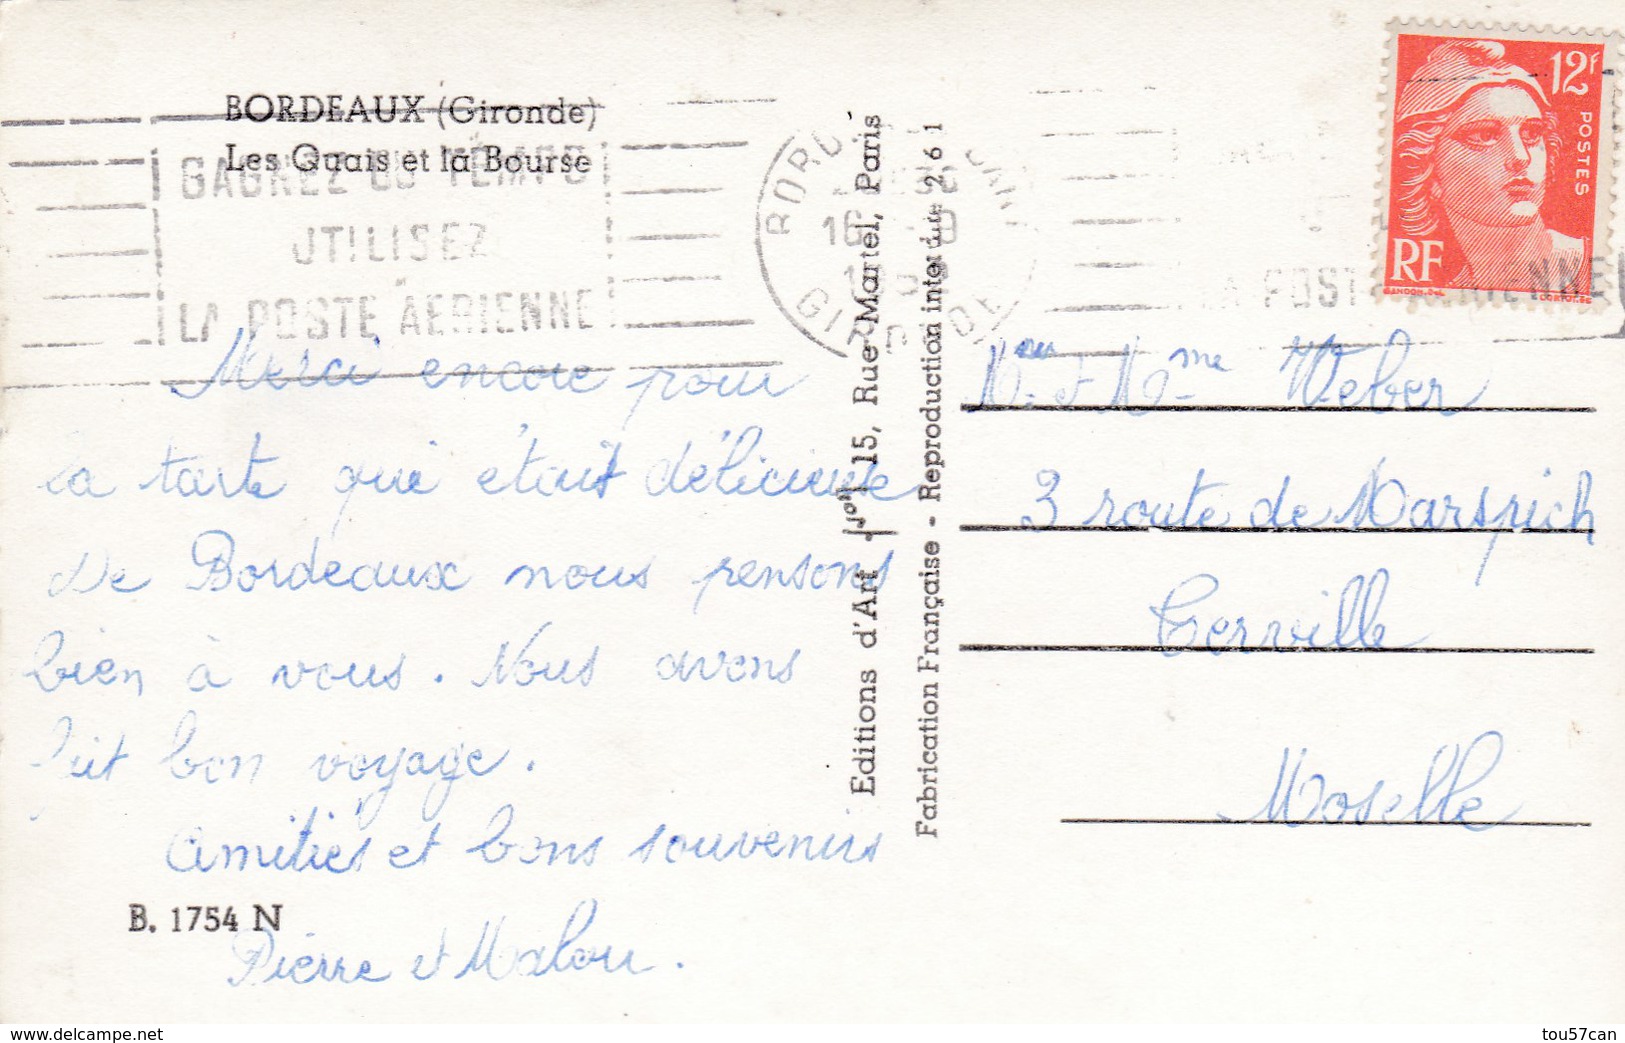 BORDEAUX (Gironde)
Les Quais et la Bourse
GAGNEZ DU TEMPS
UTILISEZ
LA POSTE AERIENNE
GIRONDE
12F
POSTES
RF
LA POSTE AERIENNE
Merci encore pour
la tarte qui était délicieuse
De Bordeaux nous pensons
bien à vous. Nous avons
fait bon voyage.
Amitiés et bons souvenirs
Pierre et Malou.
B. 1754 N
Editions d'Art 15, Rue Martel, Paris
Fabrication Française - Reproduction interdite 261
Mr et Mme Weber
3 route de Marspich
Terville
Moselle
www.delcampe.net
tou57can